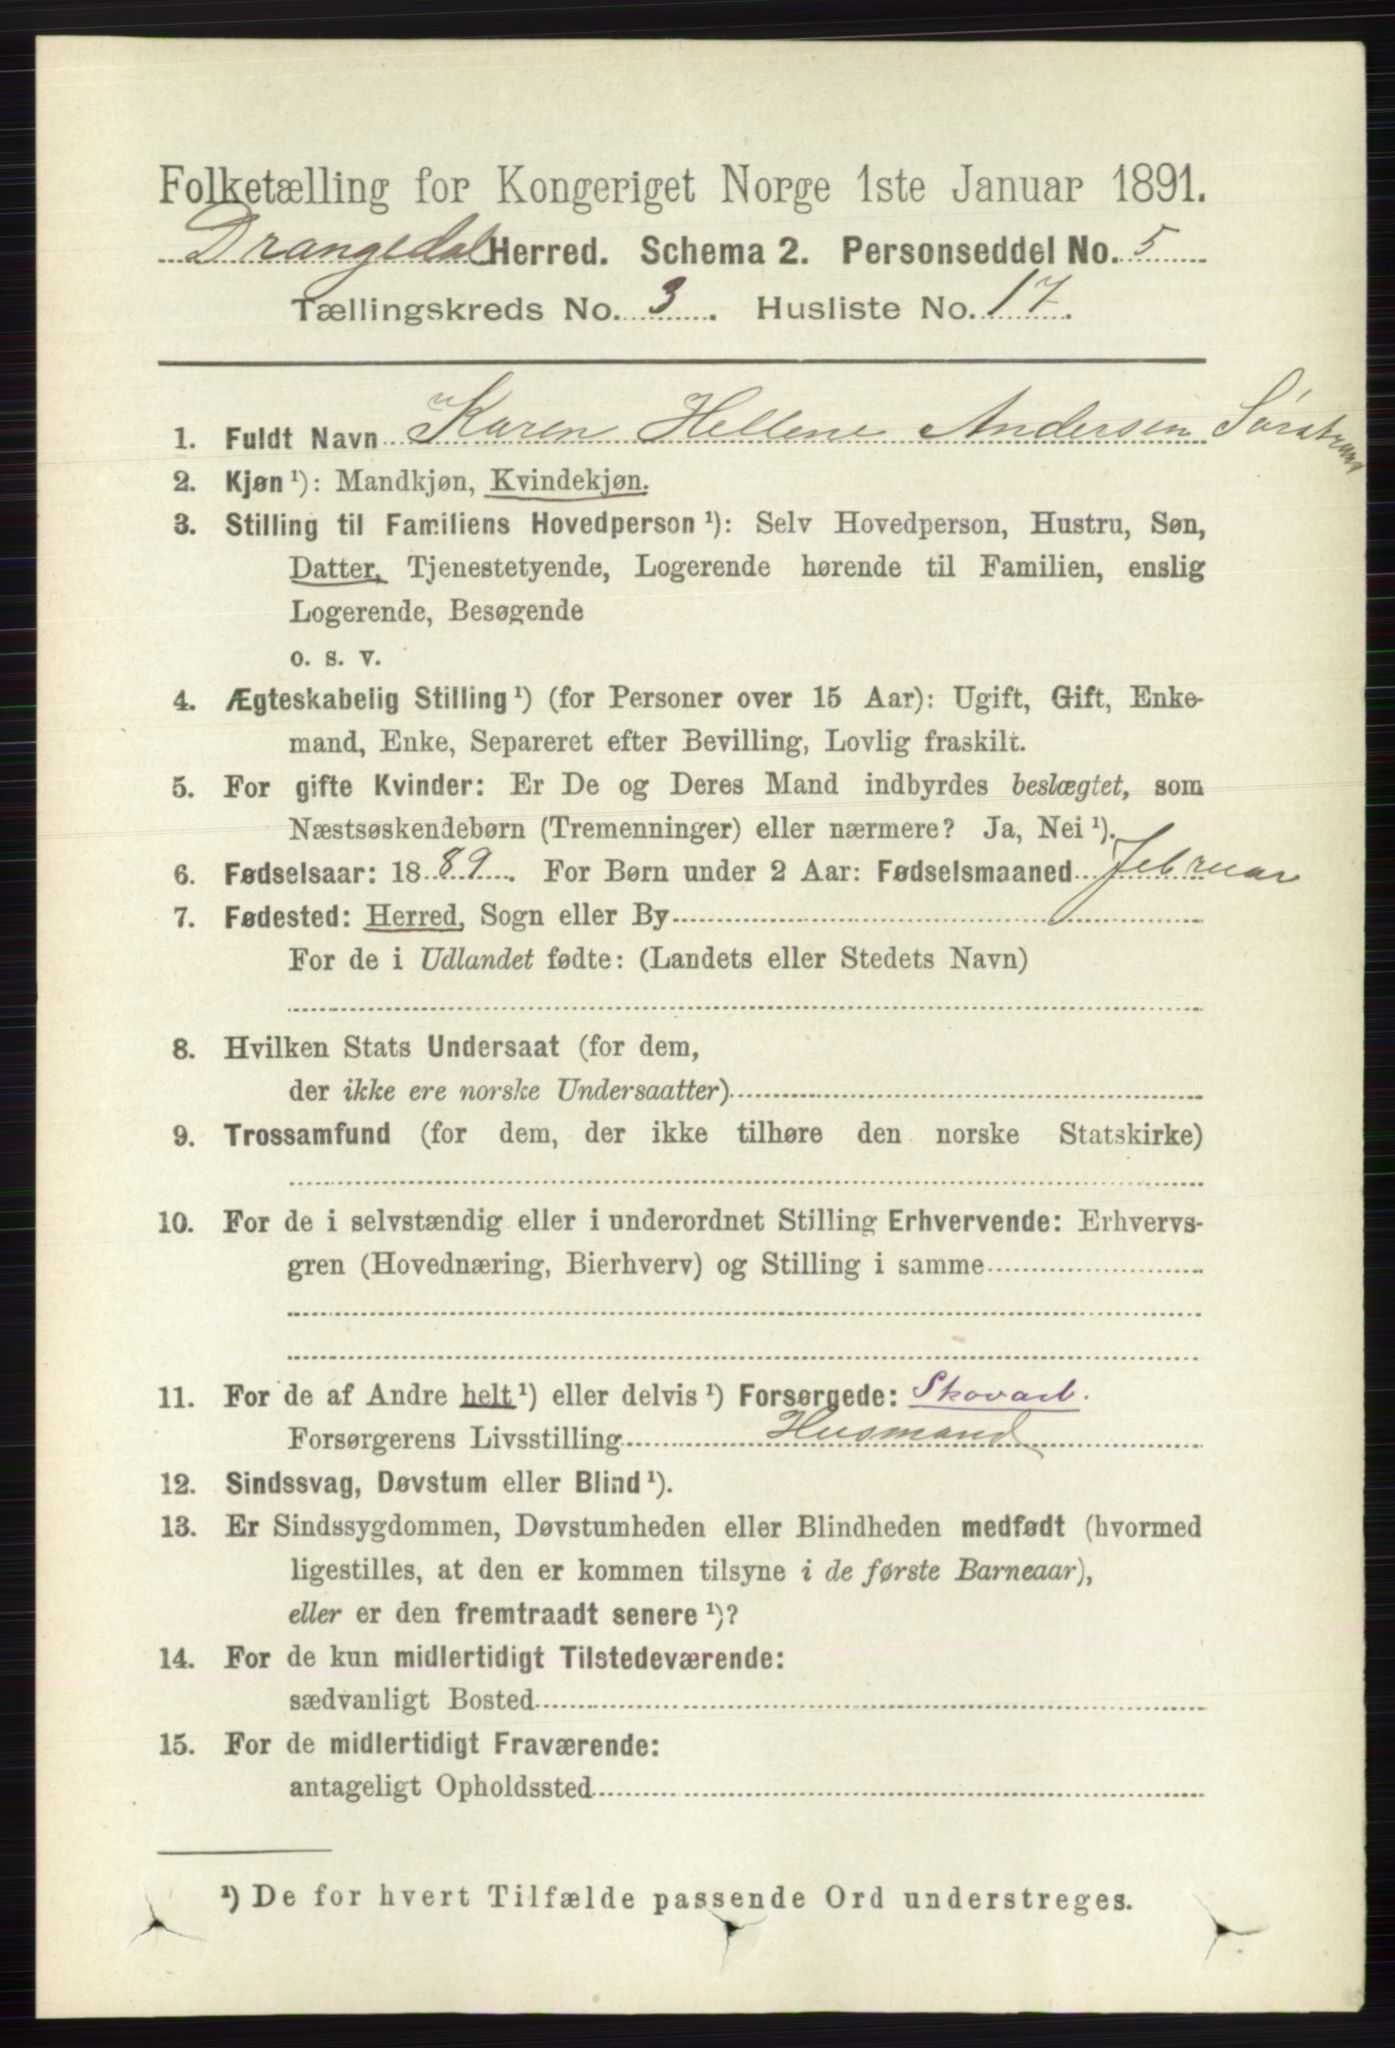 Folketælling for Kongeriget Norge 1ste Januar 1891.
Drangedal Herred. Schema 2. Personseddel No. 5
Tællingskreds No. 3. Husliste No. 17.
1. Fuldt Navn Karen Hellene Andersen Sørstrand
2. Kjøn ¹): Mandkjøn, Kvindekjøn.
3. Stilling til Familiens Hovedperson ¹): Selv Hovedperson, Hustru, Søn,
Datter, Tjenestetyende, Logerende hørende til Familien, enslig
Logerende, Besøgende
o. s. v.
4. Ægteskabelig Stilling ¹) (for Personer over 15 Aar): Ugift, Gift, Enke-
mand, Enke, Separeret efter Bevilling, Lovlig fraskilt.
5. For gifte Kvinder: Er De og Deres Mand indbyrdes beslægtet, som
Næstsøskendebørn (Tremenninger) eller nærmere? Ja, Nei ¹).
6. Fødselsaar: 1889. For Børn under 2 Aar: Fødselsmaaned Februar
7. Fødested: Herred, Sogn eller By
For de i Udlandet fødte: (Landets eller Stedets Navn)
8. Hvilken Stats Undersaat (for dem,
der ikke ere norske Undersaatter)
9. Trossamfund (for dem, der ikke tilhøre den norske Statskirke)
10. For de i selvstændig eller i underordnet Stilling Erhvervende: Erhvervs-
gren (Hovednæring, Bierhverv) og Stilling i samme
11. For de af Andre helt ¹) eller delvis ¹) Forsørgede: Skovarb.
Forsørgerens Livsstilling Husmand
12. Sindssvag, Døvstum eller Blind ¹).
13. Er Sindssygdommen, Døvstumheden eller Blindheden medfødt (hvormed
ligestilles, at den er kommen tilsyne i de første Barneaar),
eller er den fremtraadt senere ¹)?
14. For de kun midlertidigt Tilstedeværende:
sædvanligt Bosted
15. For de midlertidigt Fraværende:
antageligt Opholdssted
¹) De for hvert Tilfælde passende Ord understreges.